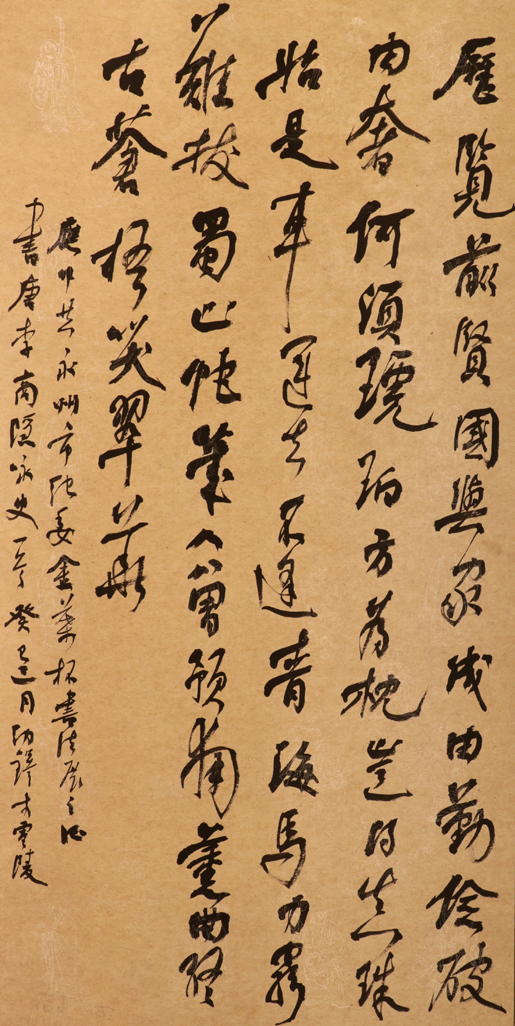 歷覽前賢國與家成由勤儉破
由奢何須琥珀方為枕豈得真珠
始是車運去不逢青海馬力窮
難拔蜀山蛇幾人曾預南薰曲終
古蒼梧哭翠華
應中共永州市純委金葉杯書法展之征
書唐李商隱咏史一首癸巳月於零陵